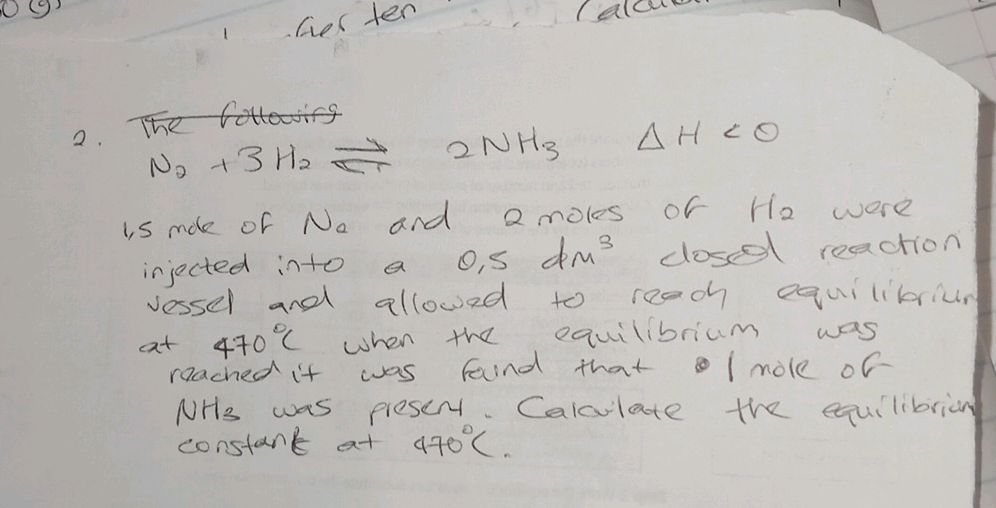 (g)
Gester
Calcul
2. The following
N2 + 3H2 ⇌ 2NH3 ΔH < 0
1,5 mole of N2 and 2 moles of H2 were
injected into a 0,5 dm³ closed reaction
vessel and allowed to reach equilibrium
at 470°C when the equilibrium was
reached it was found that 1 mole of
NH3 was present. Calculate the equilibrium
constant at 470°C.